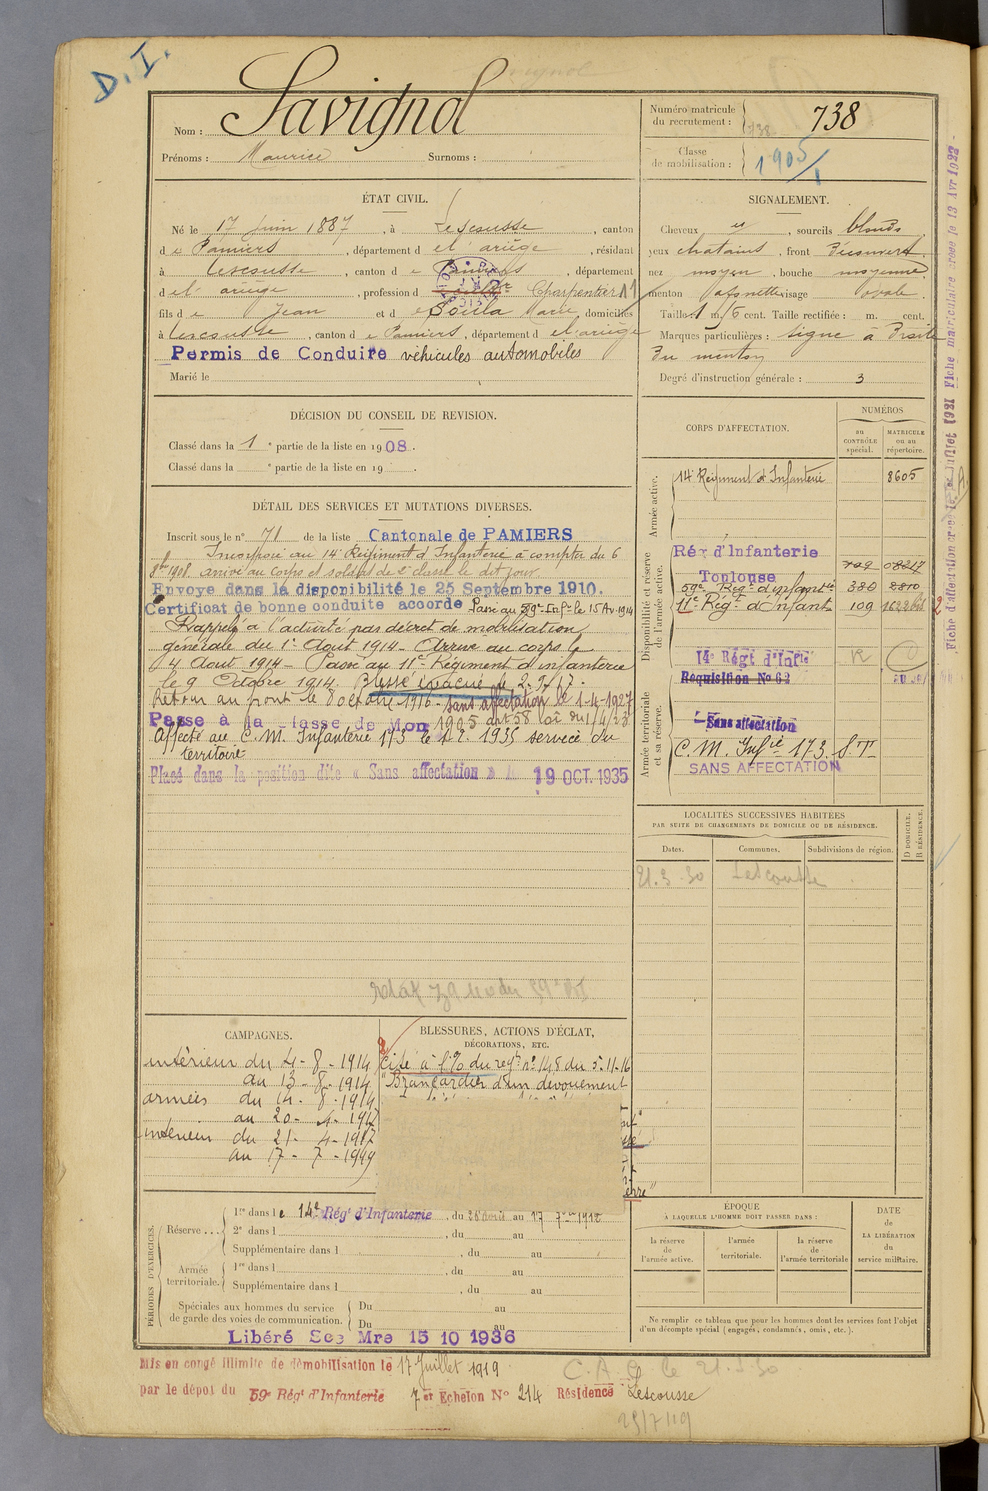 D. I.
Nom : Savignol
Prénoms : Maurice Surnoms :
Numéro matricule du recrutement : 738
Classe de mobilisation : 1905/1
ÉTAT CIVIL.
Né le 17 Juin 1887, à Lescousse, canton
de Pamiers, département de l'ariège, résidant
à Lescousse, canton de Pamiers, département
de l'ariège, profession de Charpentier
fils de Jean et de Marie domiciliés
à Lescousse, canton de Pamiers, département de l'ariège
Permis de Conduire véhicules automobiles
Marié le
SIGNALEMENT.
Cheveux et, sourcils blonds
yeux chatains, front Découvert
nez moyen, bouche moyenne
menton à fossette visage ovale
Taille : 1 m. 6 cent. Taille rectifiée : m. cent.
Marques particulières : signe à Droite
du menton
Degré d'instruction générale : 3
DÉCISION DU CONSEIL DE REVISION.
Classé dans la 1e partie de la liste en 1908.
Classé dans la e partie de la liste en 19 .
CORPS D'AFFECTATION.
NUMÉROS
au CONTRÔLE spécial.
MATRICULE ou au répertoire.
Armée active.
14e Régiment d'Infanterie 8605
Disponibilité et réserve de l'armée active.
Rég d'Infanterie
Toulouse
59e Régt d'infanterie 380 2810
11e Régt d'Infant 109
14e Régt d'Infie
Réquisition No 62
Armée territoriale et sa réserve.
Sans affectation
C. M. Infie 173 S.T
SANS AFFECTATION
DÉTAIL DES SERVICES ET MUTATIONS DIVERSES.
Inscrit sous le n° 71 de la liste Cantonale de PAMIERS
Incorporé au 14e Régiment d'Infanterie à compter du 6
8bre 1908. arrivé au corps et soldat de 2e classe le dit jour.
Envoye dans la disponibilité le 25 Septembre 1910.
Certificat de bonne conduite accorde Passé au 59e Infie le 15 Av. 1914
Rappelé à l'activité par décret de mobilisation
générale du 1er Aout 1914 - Arrivé au corps le
4 Aout 1914 - Passé au 11e Régiment d'infanterie
le 9 Octobre 1914. Blessé évacué le
Retour au front le 8 octobre 1916 - Sans affectation le 1-4-1927
Passe à la classe de Mon 1905 art 58 loi du 1/4/23
Affecté au C. M. Infanterie 173 le 1935 service du
territoire
Placé dans la position dite « Sans affectation » 19 OCT. 1935
LOCALITÉS SUCCESSIVES HABITÉES
PAR SUITE DE CHANGEMENTS DE DOMICILE OU DE RÉSIDENCE.
Dates. Communes. Subdivisions de région. D DOMICILE. R RÉSIDENCE.
21.3.30 Lescousse
CAMPAGNES.
intérieur du 4-8-1914
au 13-8-1914
armées du 14-8-1914
au 20-4-1917
intérieur du 21-4-1917
au 17-7-1919
BLESSURES, ACTIONS D'ÉCLAT,
DÉCORATIONS, ETC.
Cité à l'O. du régt no 148 du 5-11-16
"Brancardier d'un dévouement
PÉRIODES D'EXERCICES.
Réserve... 1re dans le 14e Régt d'Infanterie, du au 17
2e dans l , du au
Supplémentaire dans l , du au
Armée territoriale. 1re dans l , du au
Supplémentaire dans l , du au
Spéciales aux hommes du service de garde des voies de communication. Du au
Du au
Libéré Sce Mre 15 10 1936
ÉPOQUE
À LAQUELLE L'HOMME DOIT PASSER DANS :
la réserve de l'armée active.
l'armée territoriale.
la réserve de l'armée territoriale
DATE DE LA LIBÉRATION du service militaire.
Ne remplir ce tableau que pour les hommes dont les services font l'objet
d'un décompte spécial (engagés, condamnés, omis, etc.).
Mis en congé illimité de démobilisation le 17 Juillet 1919
par le dépôt du 59e Régt d'Infanterie 7e Echelon No 214 Résidence Lescousse
C. A. le 21.3.30